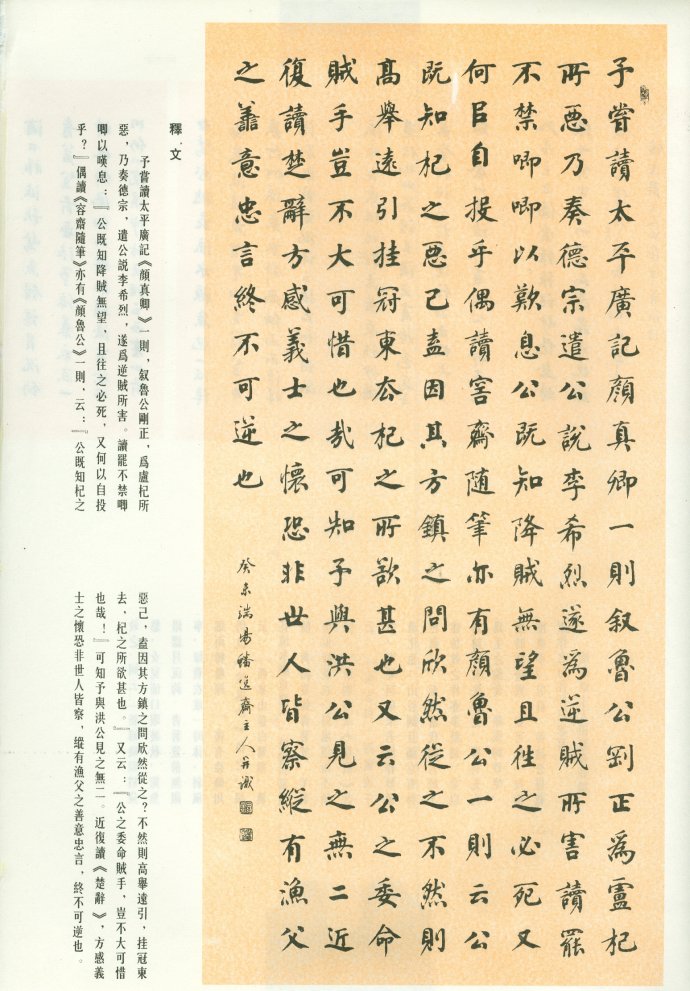 予嘗讀太平廣記顏真卿一則叙魯公剛正為盧杞
所惡乃奏德宗遣公說李希烈遂為逆賊所害讀罷
不禁唧唧以歎息公既知降賊無望且往之必死又
何㠯自投乎偶讀容齋随筆亦有顏魯公一則云公
既知杞之惡己盍因其方鎮之問欣然從之不然則
高舉遠引挂冠東去杞之所欲甚也又云公之委命
賊手豈不大可惜也哉可知予與洪公見之無二近
復讀楚辭方感義士之懷恐非世人皆察縱有漁父
之善意忠言終不可逆也
癸未端陽齋主人并識
釋文
予嘗讀太平廣記《顏真卿》一則，叙魯公剛正，爲盧杞所
惡，乃奏德宗，遣公說李希烈，遂爲逆賊所害。讀罷不禁唧
唧以嘆息：『公既知降賊無望，且往之必死，又何以自投
乎？』偶讀《容齋隨筆》亦有《顏魯公》一則，云：『公既知杞之
惡己，盍因其方鎮之問欣然從之？不然則高舉遠引，挂冠東
去，杞之所欲甚也。』又云：『公之委命賊手，豈不大可惜
也哉！』可知予與洪公見之無二。近復讀《楚辭》，方感義
士之懷恐非世人皆察，縱有漁父之善意忠言，終不可逆也。